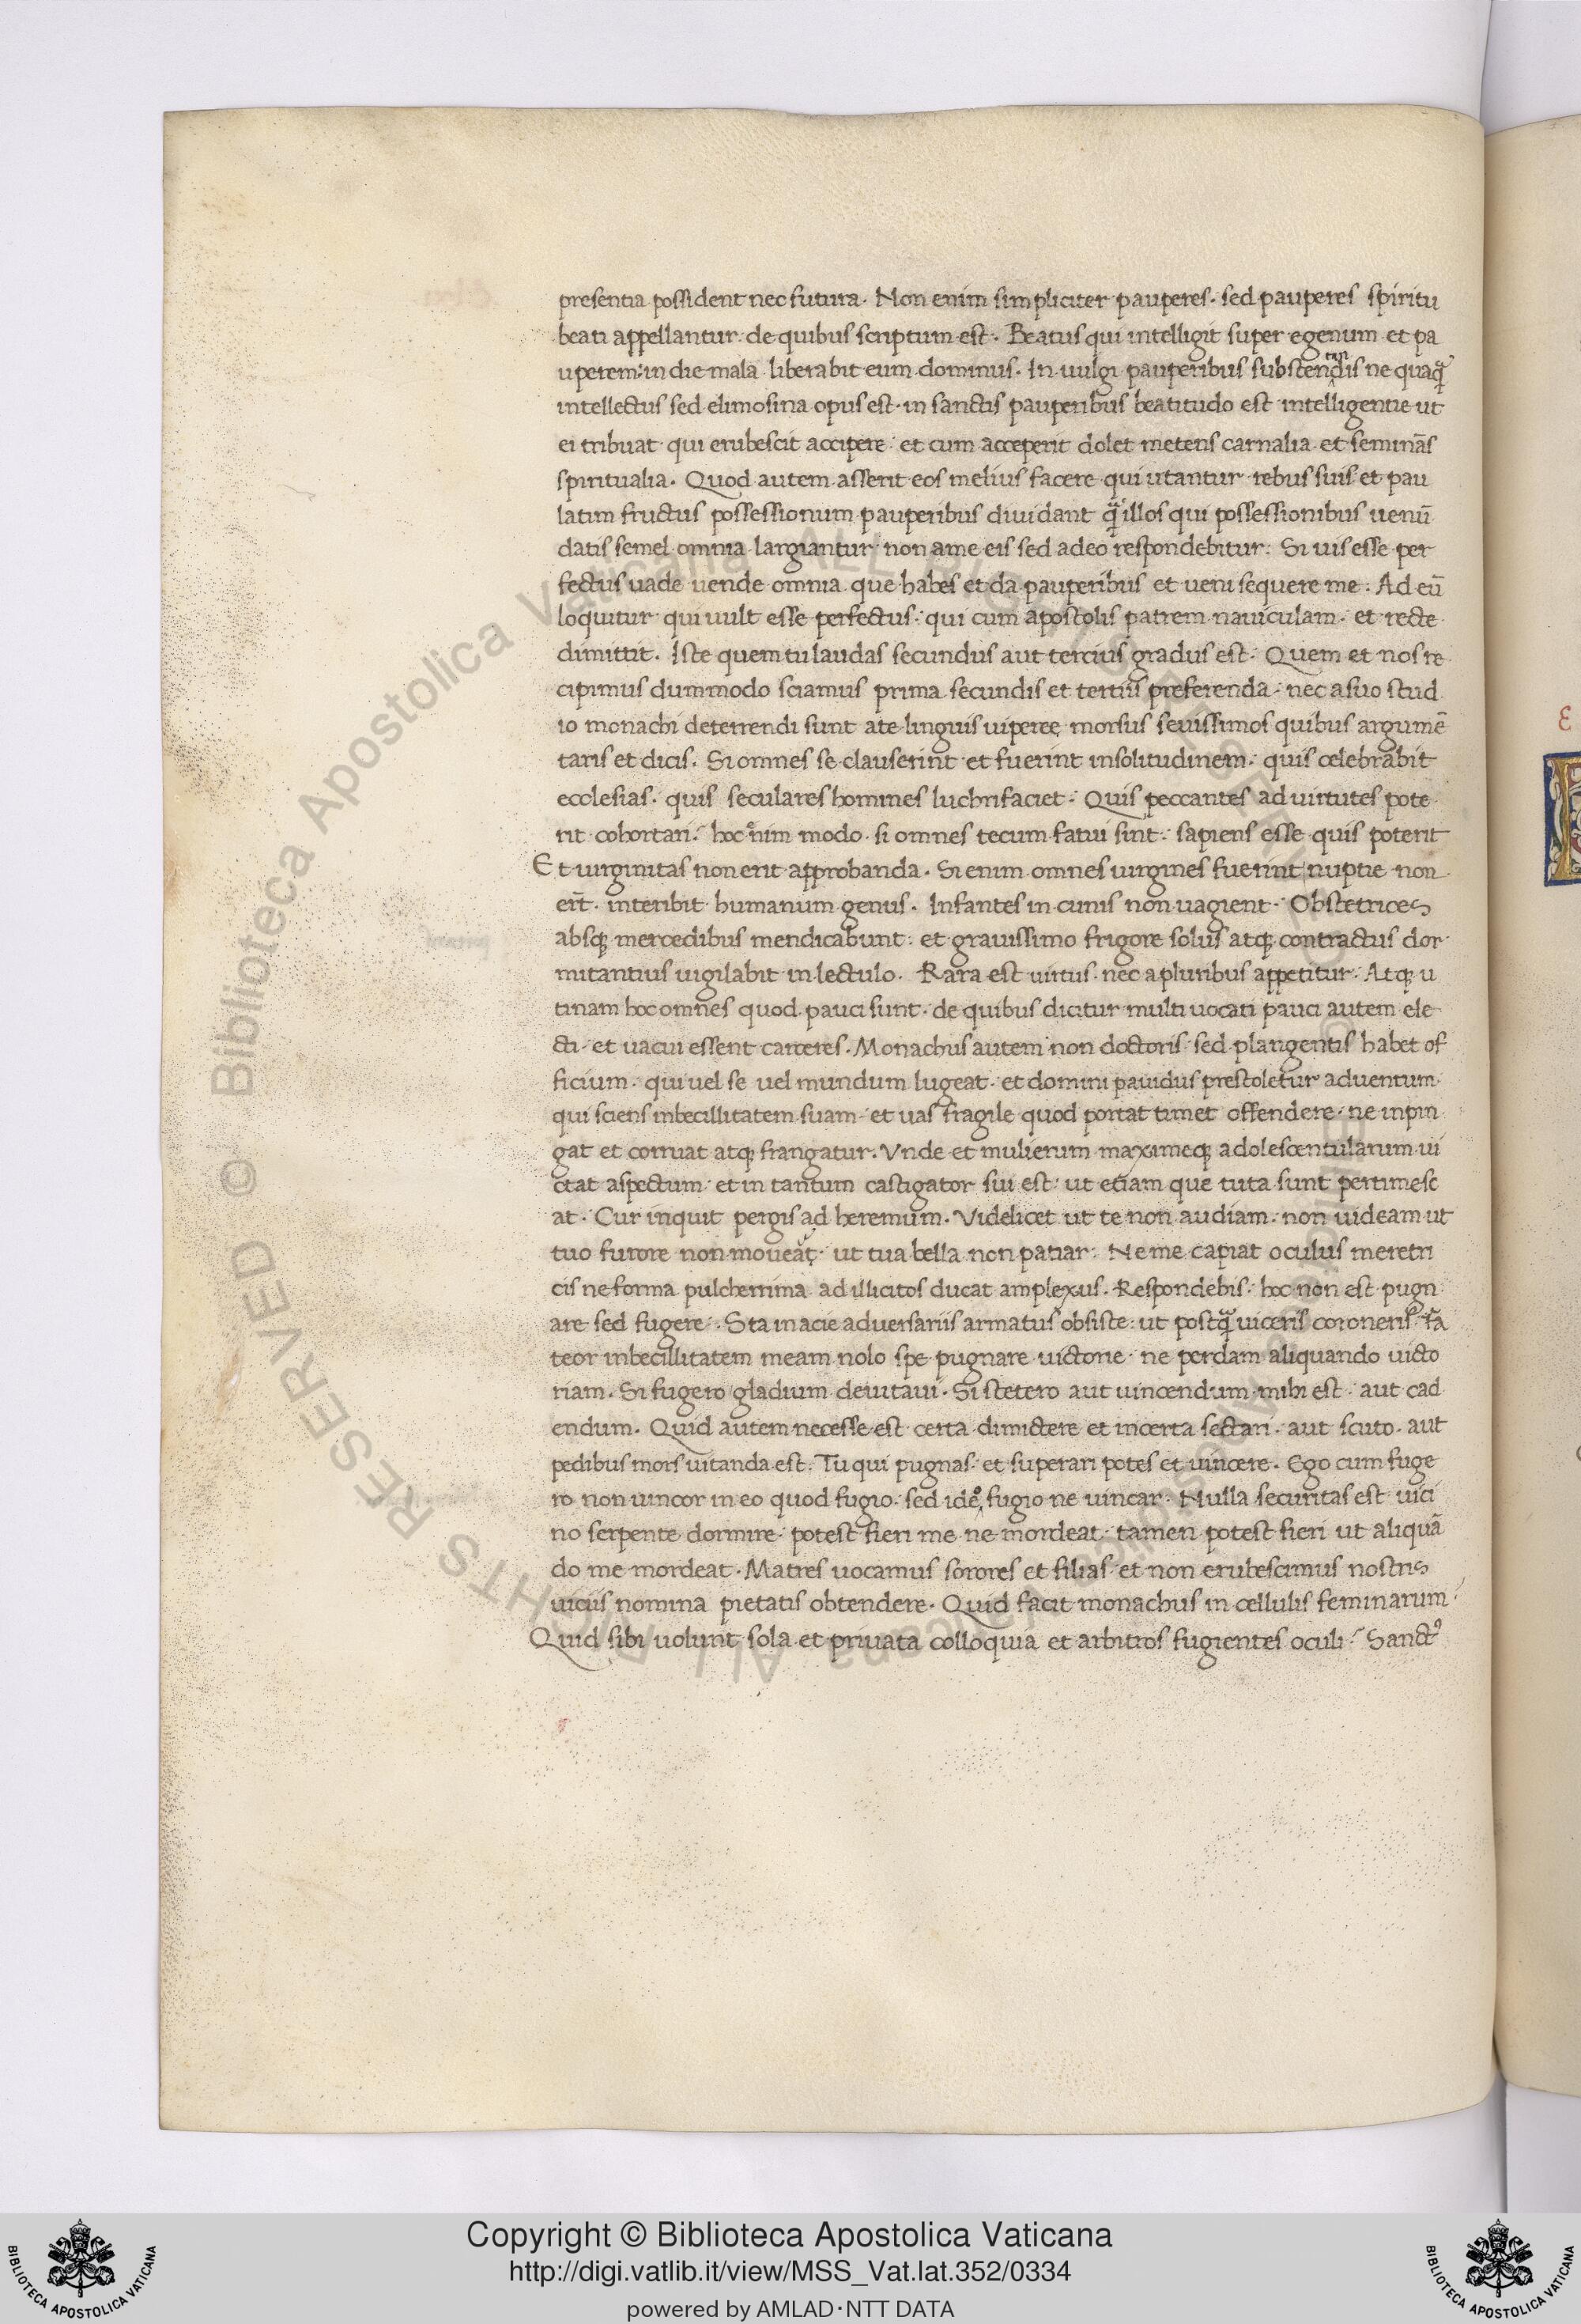 presentia possident nec futura. Non enim simpliciter pauperes. sed pauperes spiritu
beati appellantur. de quibus scriptum est. Beatus qui intelligit super egenum et pa
uperem: in die mala liberabit eum dominus. In uulgi pauperibus substentandis ne quaq̃
intellectus sed elimosina opus est. in sanctis pauperibus beatitudo est intelligentie ut
ei tribuat qui erubescit accipere: et cum acceperit dolet metens carnalia et seminãs
spiritualia. Quod autem asserit eos melius facere qui utantur rebus suis et pau
latim fructus possessionum pauperibus diuidant q̃ illos qui possessionibus uenũ
datis semel omnia largiantur non ame eis sed adeo respondebitur: Si uis esse per
fectus uade uende omnia que habes et da pauperibus et ueni sequere me: Ad eũ
loquitur qui uult esse perfectus: qui cum apostolis patrem nauiculam. et recte
dimittit. Iste quem tu laudas secundus aut tercius gradus est. Quem et nos re
cipimus dummodo sciamus prima secundis et tertiis preferenda. nec a suo stud
io monachi deterrendi sunt ate linguis uiperee morsus seuissimos quibus argumẽ
taris et dicis. Si omnes se clauserint et fuerint insolitudinem. quis celebrabit
ecclesias. quis seculares homines luchrifaciet. Quis peccantes ad uirtutes pote
rit cohortari. hoc enim modo si omnes tecum fatui sint: sapiens esse quis poterit
Et uirginitas non erit approbanda. Si enim omnes uirgines fuerint nuptie non
erĩt. interibit humanum genus. Infantes in cunis non uagient. Obstetrices
absq; mercedibus mendicabunt: et grauissimo frigore solus atq; contractus dor
mitantius uigilabit in lectulo. Rara est uirtus. nec a pluribus appetitur. Atq; u
tinam hoc omnes quod pauci sunt. de quibus dicitur multi uocati pauci autem ele
cti. et uacui essent carceres. Monachus autem non doctoris sed plangentis habet of
ficium. qui uel se uel mundum lugeat. et domini pauidus prestoletur aduentum.
qui sciens inbecillitatem suam. et uas fragile quod portat timet offendere. ne inpin
gat et corruat atq; frangatur. Vnde et mulierum maximeq; adolescentularum ui
ctat aspectum. et in tantum castigator sui est: ut etiam que tuta sunt pertimesc
at. Cur inquit pergis ad heremum. Videlicet ut te non audiam. non uideam ut
tuo furore non mouear. ut tua bella non patiar. Ne me capiat oculus meretri
cis ne forma pulcherrima ad illicitos ducat amplexus. Respondebis. hoc non est pugn
are sed fugere. Sta in acie aduersariis armatus obsiste: ut postq̃ uiceris coroneris. Fa
teor inbecillitatem meam nolo spe pugnare uictorie. ne perdam aliquando uicto
riam. Si fugero gladium deuitaui. Si stetero aut uincendum mihi est. aut cad
endum. Quid autem necesse est certa dimictere et incerta sectari. aut scuto. aut
pedibus mors uitanda est. Tu qui pugnas. et superari potes et uincere. Ego cum fuge
ro non uincor in eo quod fugio. sed ideo fugio ne uincar. Nulla securitas est uici
no serpente dormire. potest fieri me ne mordeat. tamen potest fieri ut aliquã
do me mordeat. Matres uocamus sorores et filias. et non erubescimus nostris
uiciis nomina pietatis obtendere. Quid facit monachus in cellulis feminarum.
Quid sibi uolunt sola et priuata colloquia et arbitros fugientes oculi. Sanctꝰ
© Biblioteca Apostolica Vaticana ALL RIGHTS RESERVED
Copyright © Biblioteca Apostolica Vaticana
http://digi.vatlib.it/view/MSS_Vat.lat.352/0334
powered by AMLAD·NTT DATA
BIBLIOTECA APOSTOLICA VATICANA
BIBLIOTECA APOSTOLICA VATICANA